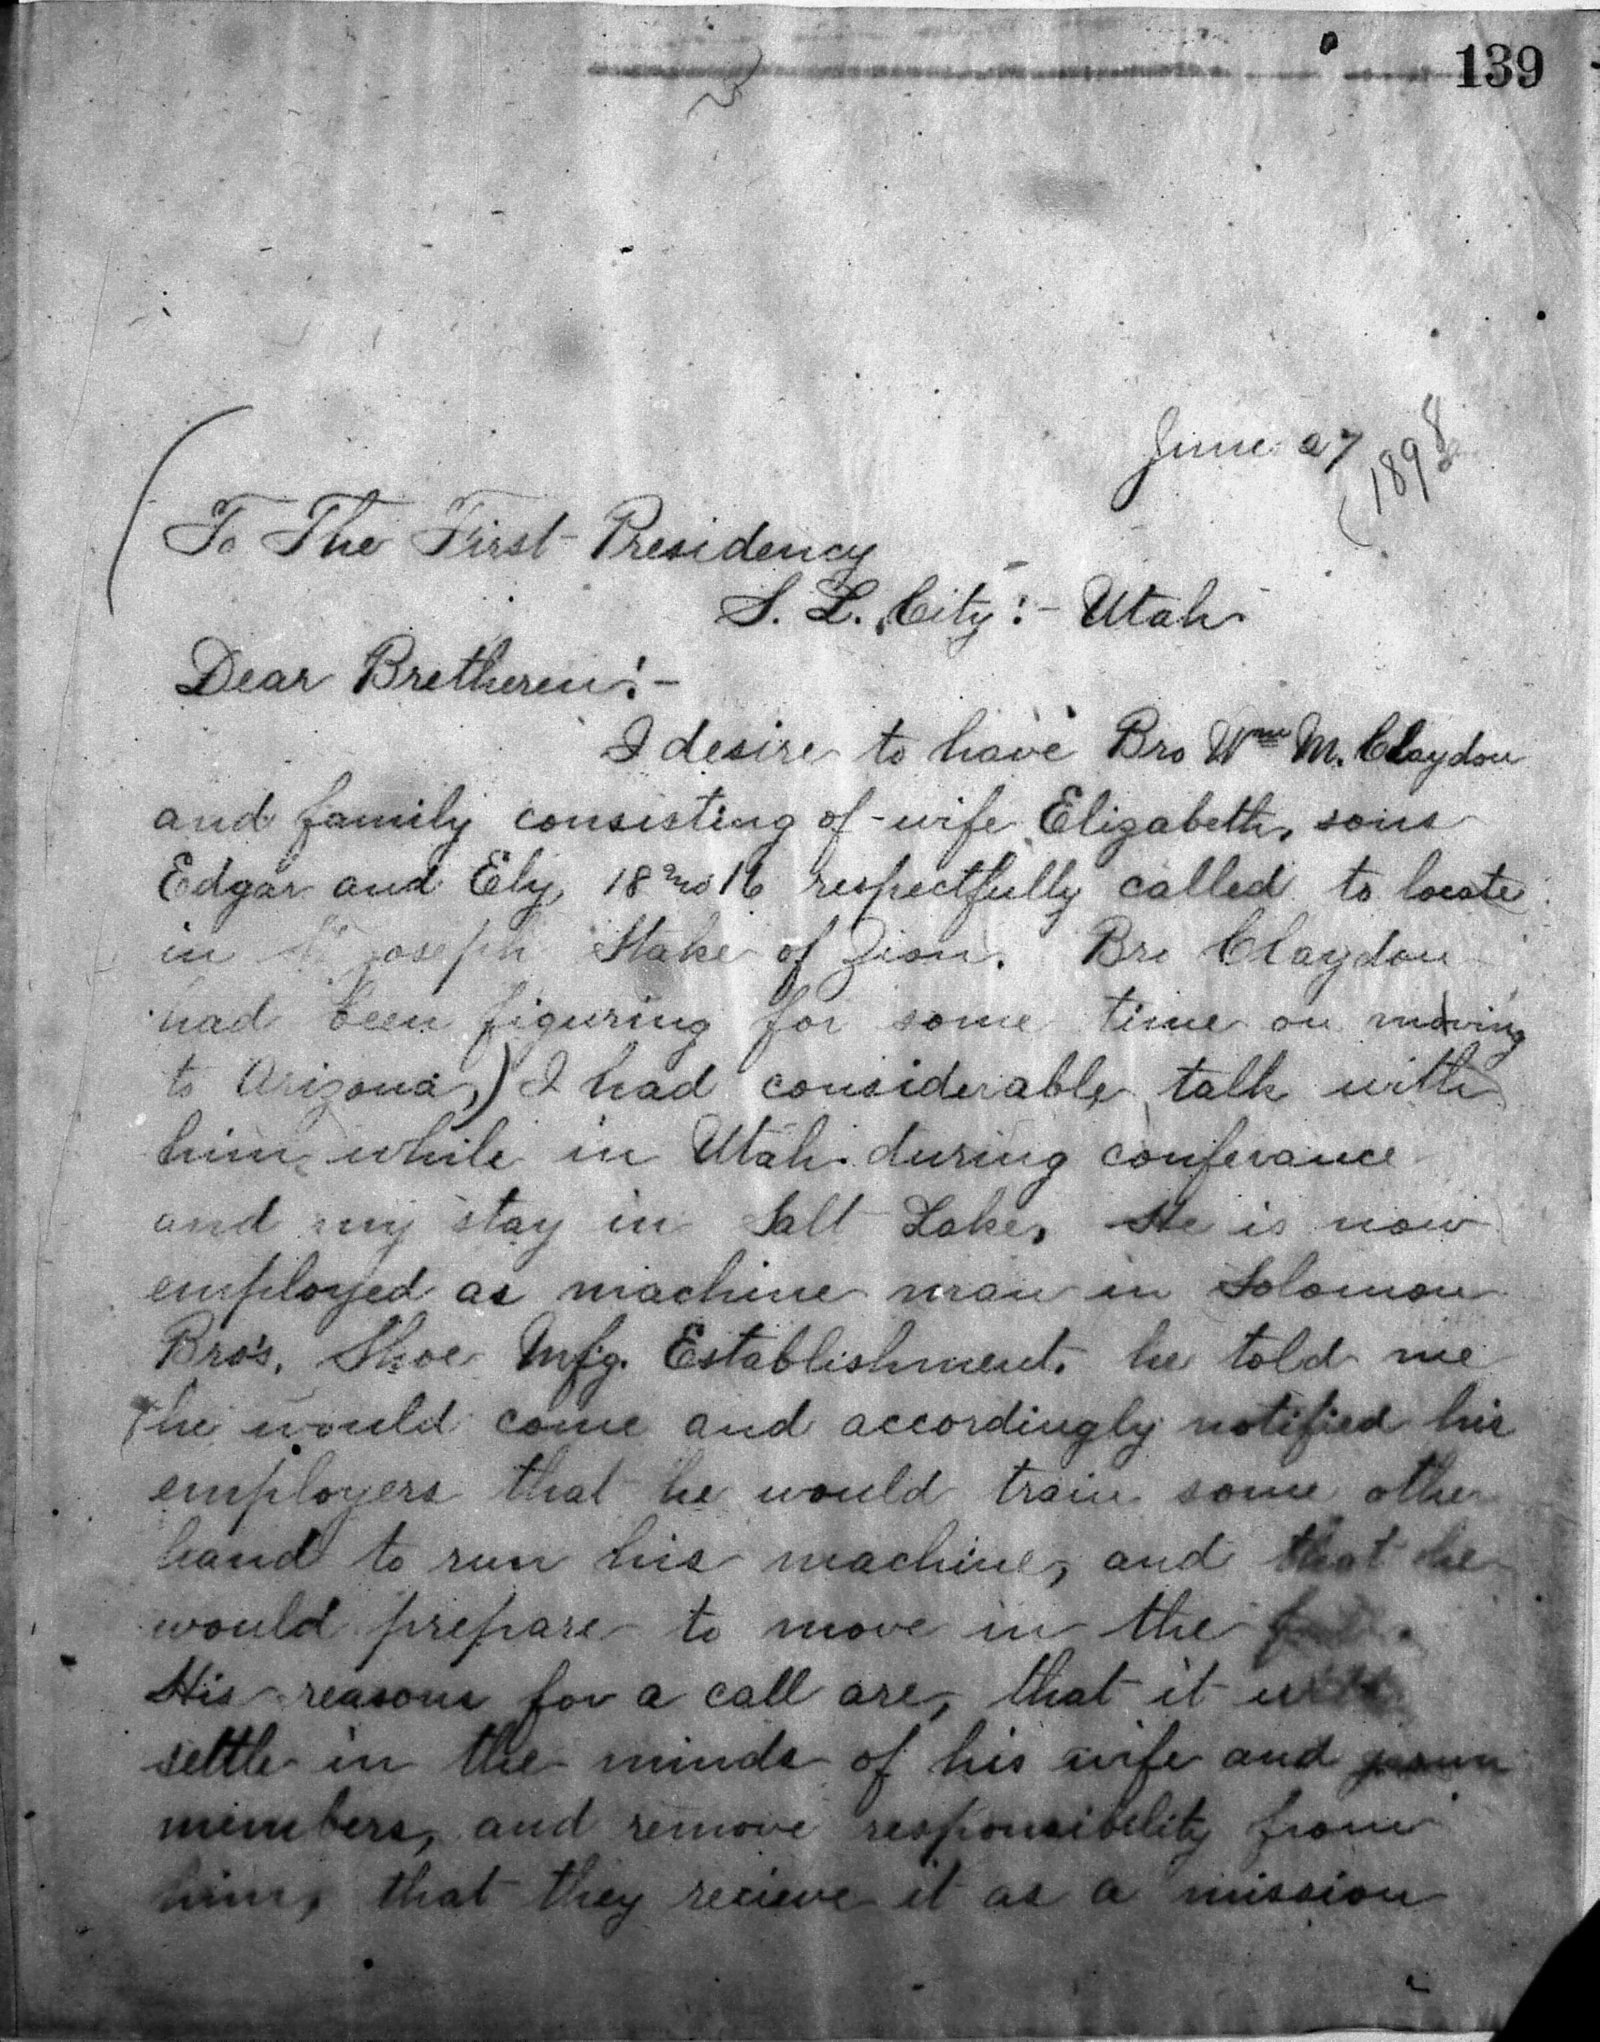 139
June 27
(1898
To The First Presidency
S. L. City:- Utah
Dear Bretheren:-
I desire to have Bro Wm M. Claydon
and family consisting of wife Elizabeth, sons
Edgar and Ely, 18 and 16 respectfully called to locate
in St Joseph Stake of Zion. Bro Claydon
had been figuring for some time on moving
to Arizona,) I had considerable talk with
him while in Utah during conferance
and my stay in Salt Lake, He is now
employed as machine man in Solomon
Bro's, Shoe Mfg. Establishment. he told me
(he would come and accordingly notified his
employers that he would train some other
hand to run his machine, and that he
would prepare to move in the
His reasons for a call are, that it will
settle in the minds of his wife and
members, and remove responsibility from
him, that they recieve it as a mission